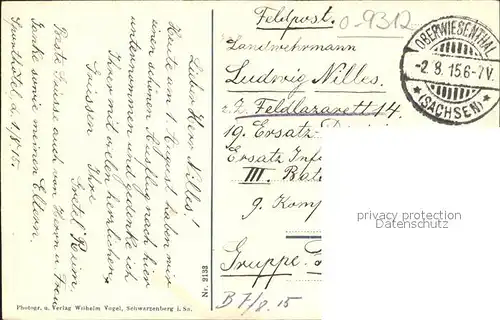 Feldpost.
O-9312
Landwehrmann
Ludwig Nilles.
z. Z. Feldlazarett 14
19. Ersatz
Ersatz Inf
III. Bat
9. Komp
Gruppe.
B7/8.15
OBERWIESENTHAL
-2.8.15.6-7V.
(SACHSEN)
privacy protection
Datenschutz
Lieber Herr Nilles!
Heute am 1. August haben wir
einen schönen Ausflug nach hier
unternommen und gedenke ich
Ihrer mit vielen herzlichen
Grüssen Ihre
Gretel
Beste Grüsse auch von Herrn u. Frau
sowie meinen Eltern.
1/8 15.
Nr. 9133
Photogr. u. Verlag Wilhelm Vogel, Schwarzenberg i. Sa.